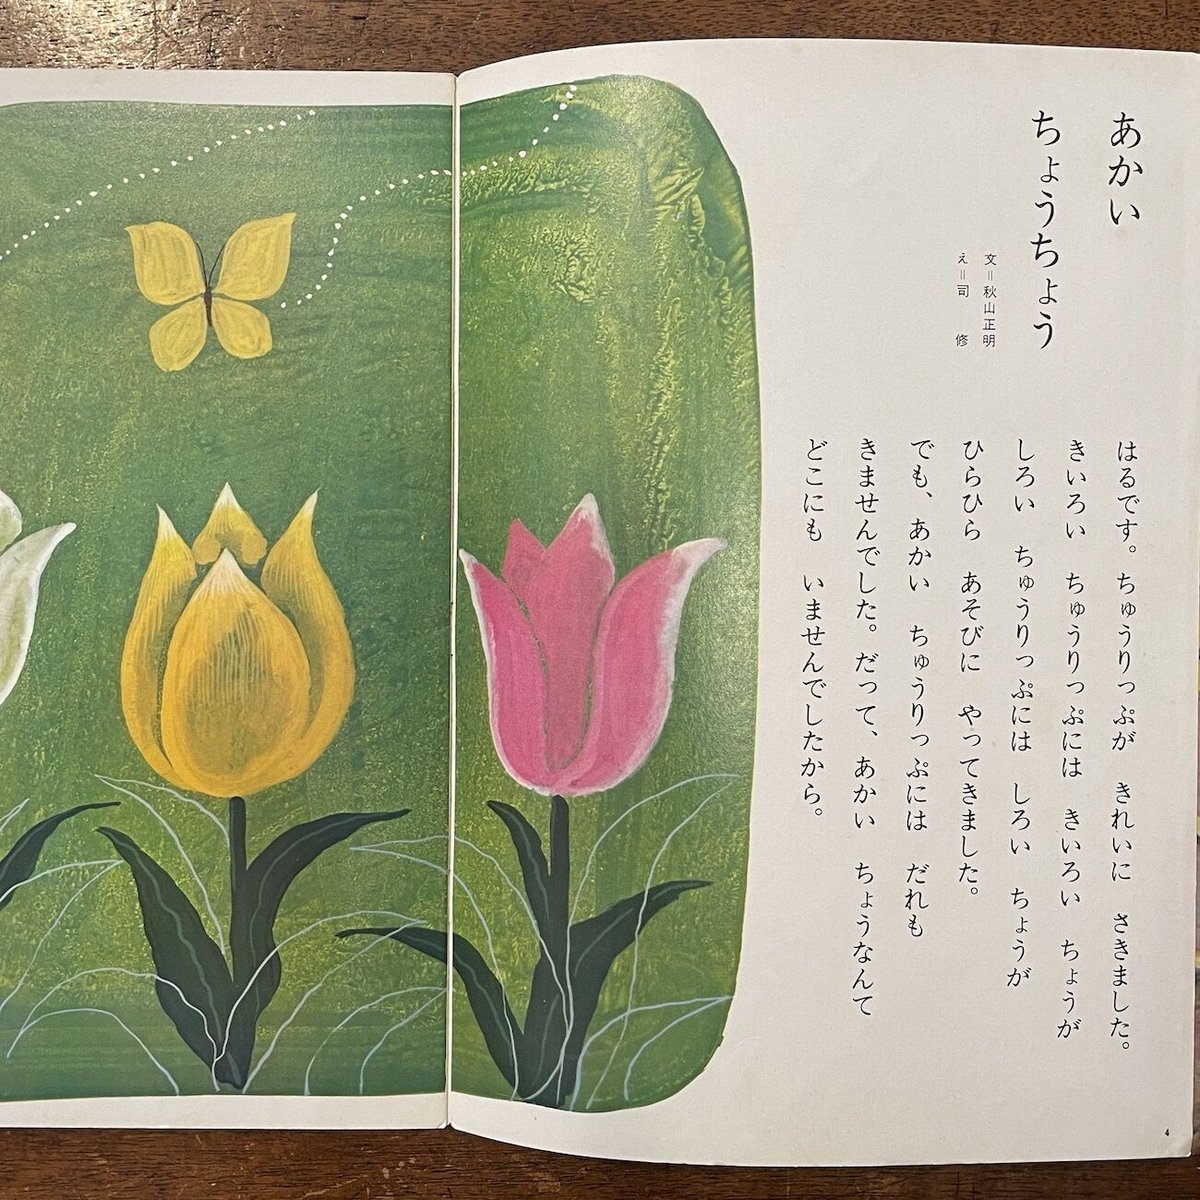 あかい
ちょうちょう
文＝秋山正明
え＝司　修
はるです。ちゅうりっぷが　きれいに　さきました。
きいろい　ちゅうりっぷには　きいろい　ちょうが
しろい　ちゅうりっぷには　しろい　ちょうが
ひらひら　あそびに　やってきました。
でも、あかい　ちゅうりっぷには　だれも
きませんでした。だって、あかい　ちょうなんて
どこにも　いませんでしたから。
4